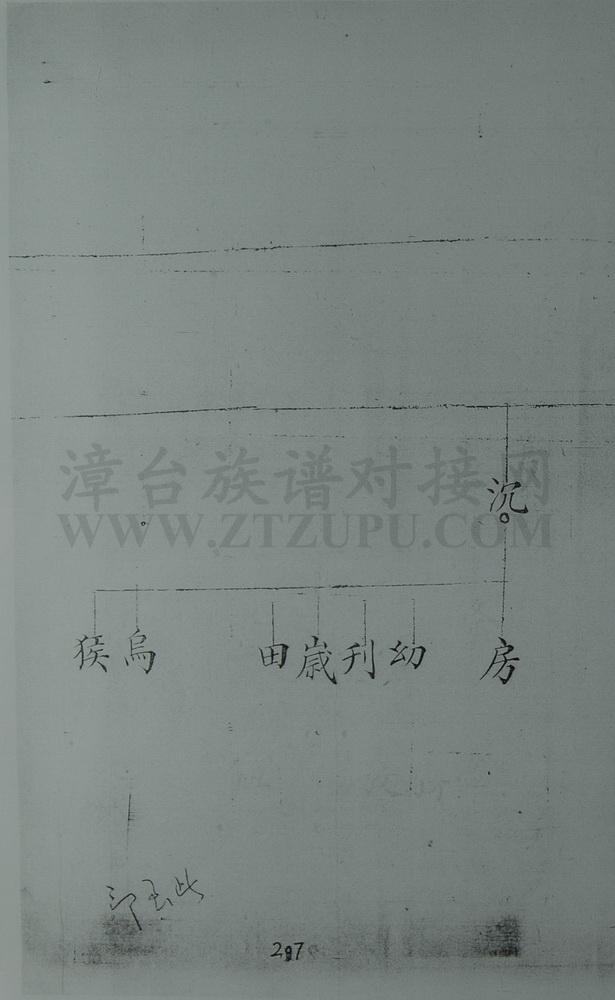 漳台族谱对接网
WWW.ZTZUPU.COM
沉
房 幼 刋 崴 田 烏 猴
297